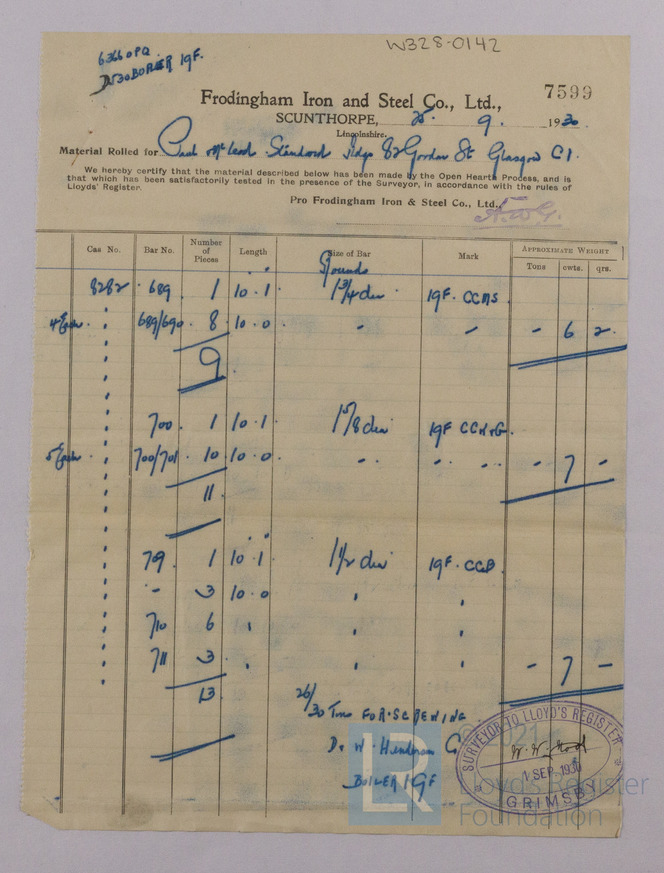 W328-0142
6366 OPQ
BOILER 19F.
7599
Frodingham Iron and Steel Co., Ltd.,
SCUNTHORPE, 9. 1930
Lincolnshire.
Material Rolled for Standard Bldgs 82 Gordon St Glasgow C1.
We hereby certify that the material described below has been made by the Open Hearth Process, and is
that which has been satisfactorily tested in the presence of the Surveyor, in accordance with the rules of
Lloyds' Register.
Pro Frodingham Iron & Steel Co., Ltd.,
Cas No. Bar No. Number of Pieces Length Size of Bar Mark Approximate Weight
Tons cwts. qrs.
Rounds
8282 689 1 10.1 1 3/4 dia 19F. CCMS
4 Each 689/690 8 10.0 " " - 6 2
9
700 1 10.1 1 5/8 dia 19F
5 Each 700/701 10 10.0 " " " - 7 -
11
709 1 10.1 1 1/2 dia 19F.
" 3 10.0 " "
710 6 " " "
711 3 " " " - 7 -
13
26/30 FOR SCREWING
D. W. Henderson G
BOILER 19F
SURVEYOR TO LLOYD'S REGISTER
1 SEP. 1930
GRIMSBY
LR
© 2021
Lloyd's Register
Foundation